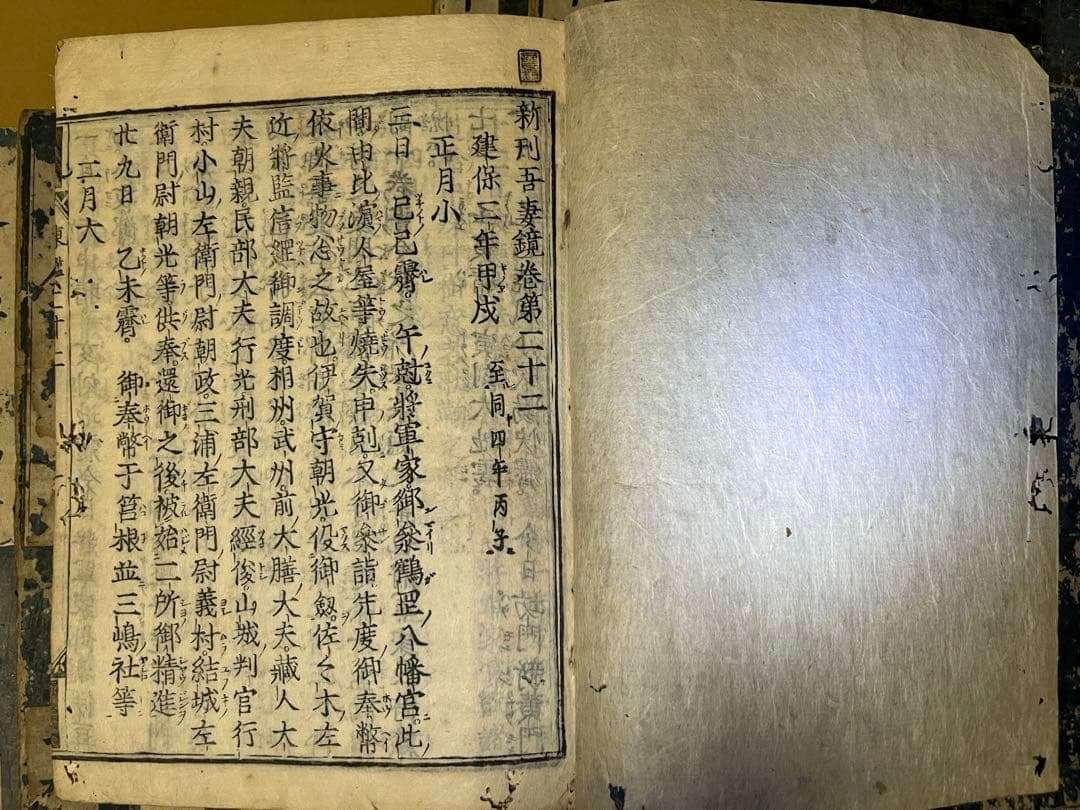 新刊吾妻鏡卷第二十二
建保二年甲戌 至同四年丙子
正月小
三日 己巳霽。午尅。將軍家御參鶴罡八幡宮。此
間由比濱人屋等燒失。申尅。又御參詣先度御奉幣
依火事物忩之故也。伊賀守朝光役御劔。佐々木左
近將監信綱御調度。相州。武州。前大膳大夫。藏人大
夫朝親。民部大夫行光刑部大夫經俊。山城判官行
村。小山左衛門尉朝政。三浦左衛門尉義村。結城左
衛門尉朝光等供奉。還御之後被始二所御精進
廿九日 乙未霽。 御奉幣于筥根並三嶋社等
二月大
東鑑二十二